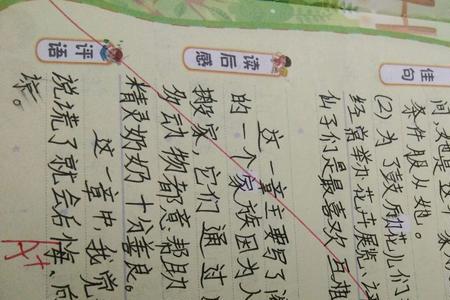 佳句
间,她是这个家
条件服从她。
(2)为了鼓励花儿们
经常举办花卉展览、
仙子们是最喜欢互相
读后感
这一章主要写了
的一个家族因为人
搬家,它们通过
动物都意帮助
精灵奶奶十分善良。
评语
这一章中,我觉
说谎了就会后悔、